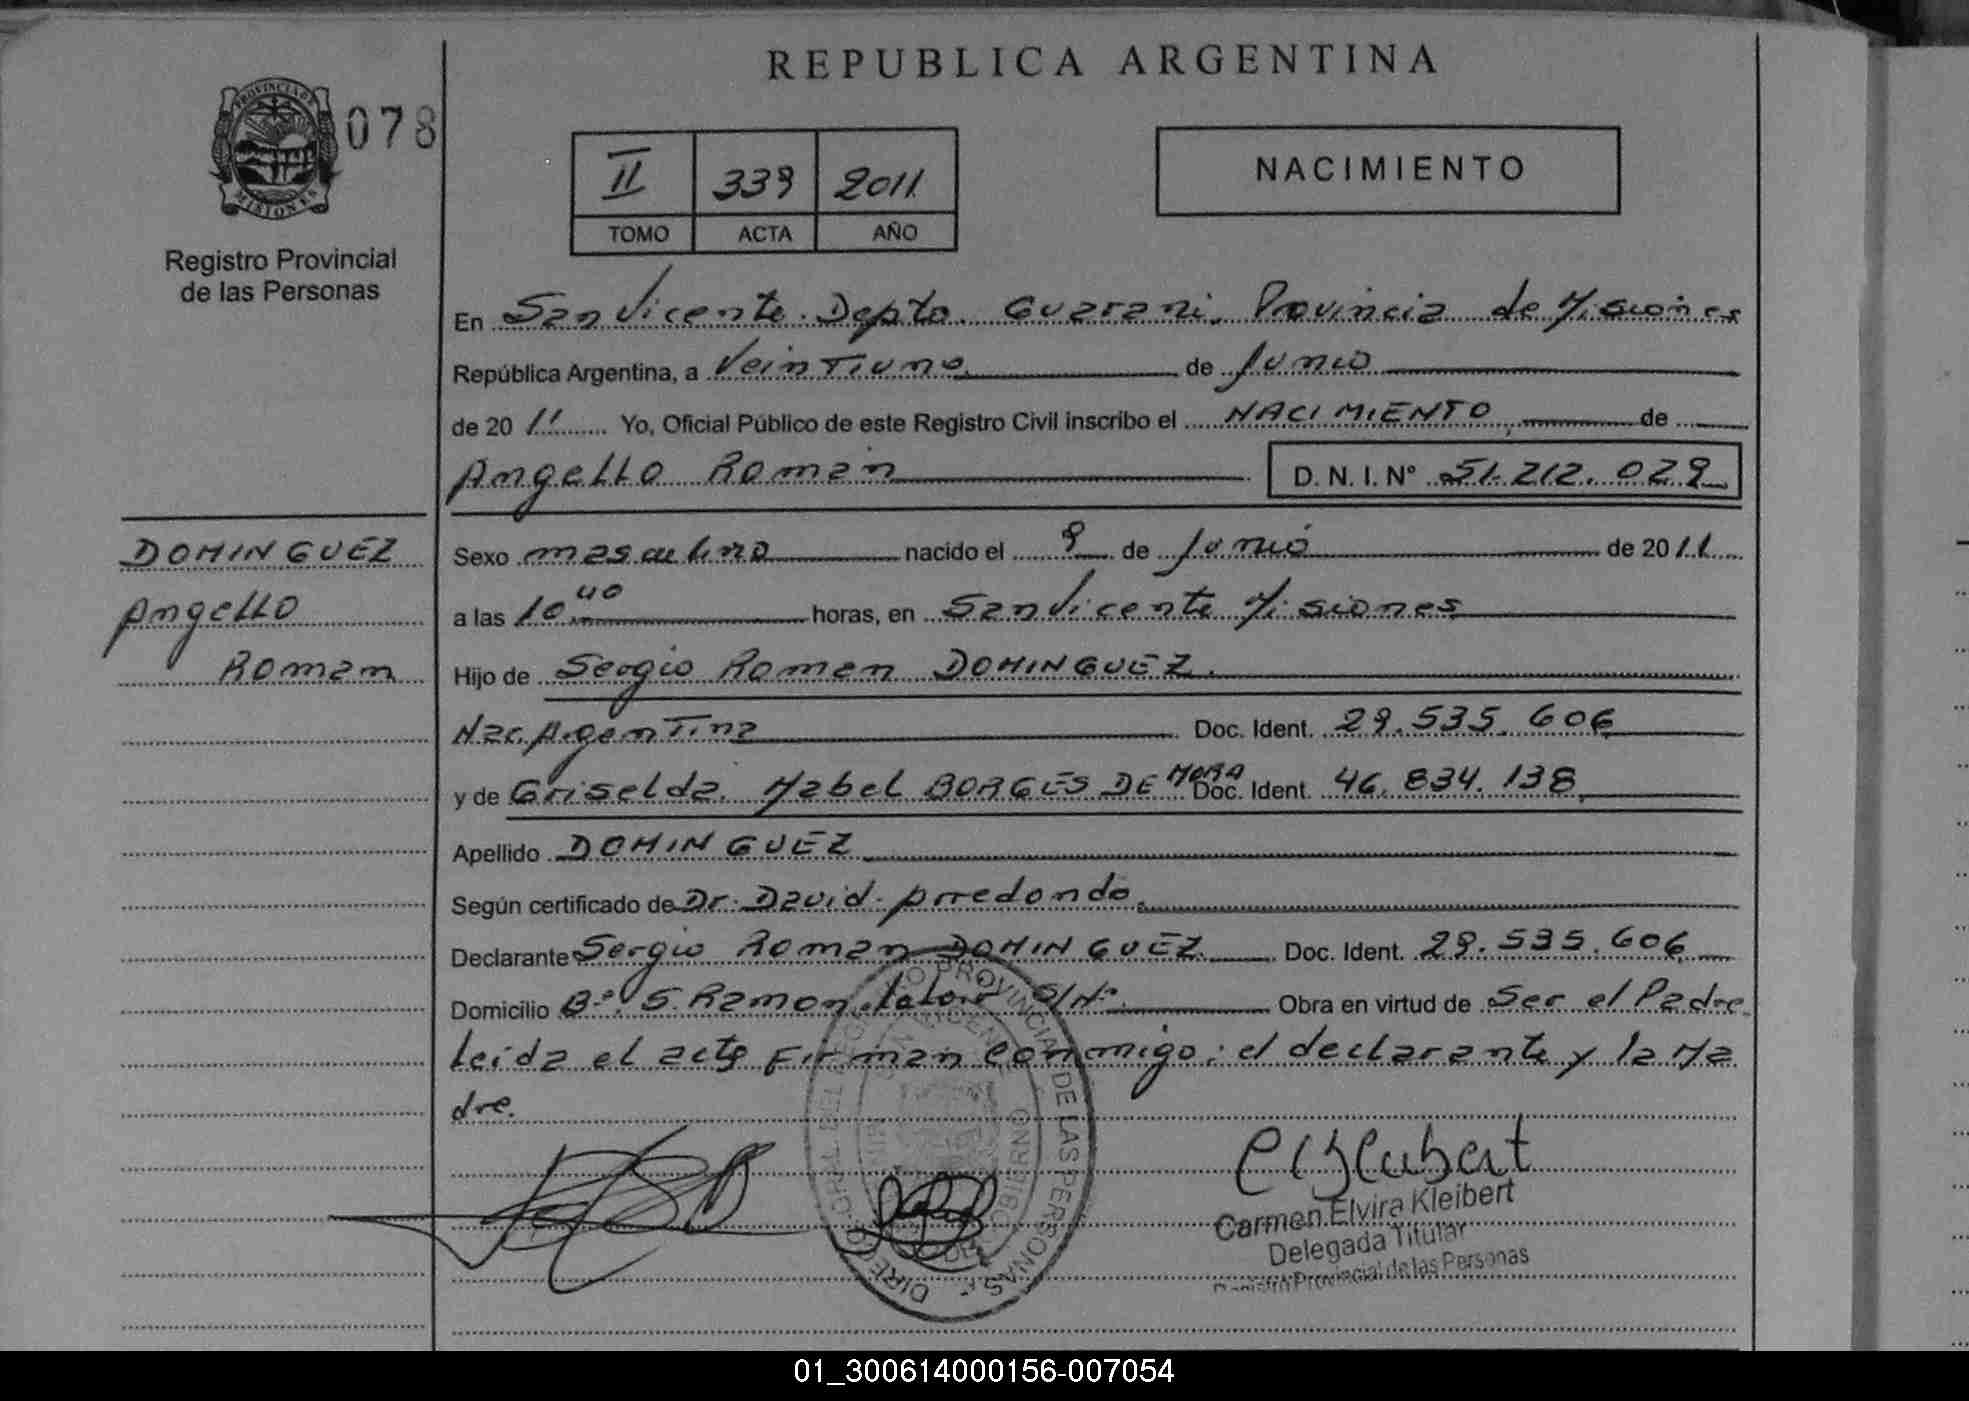 REPUBLICA ARGENTINA
PROVINCIA DE
MISIONES
078
Registro Provincial
de las Personas
II 339 2011
TOMO ACTA AÑO
NACIMIENTO
En San Vicente. Depto. Guarani, Provincia de Misiones
República Argentina, a Veintiuno de Junio
de 2011 Yo, Oficial Público de este Registro Civil inscribo el NACIMIENTO de
Angello Roman D. N. I. Nº 51.212.029
DOMINGUEZ
Angello
Roman
Sexo masculino nacido el 9 de Junio de 2011
a las 10 40 horas, en San Vicente Misiones
Hijo de Sergio Roman DOMINGUEZ.
Nac. Argentina Doc. Ident. 29.535.606
y de Griselda Mabel BORGES DE MORA Doc. Ident. 46.834.138
Apellido DOMINGUEZ
Según certificado de Dr. David Arredondo.
Declarante Sergio Roman DOMINGUEZ Doc. Ident. 29.535.606
Domicilio Bº. S. Ramon S/Nº. Obra en virtud de Ser el Padre
leida el acta Firman conmigo: el declarante y la Ma
dre.
Carmen Elvira Kleibert
Delegada Titular
Registro Provincial de las Personas
01_300614000156-007054